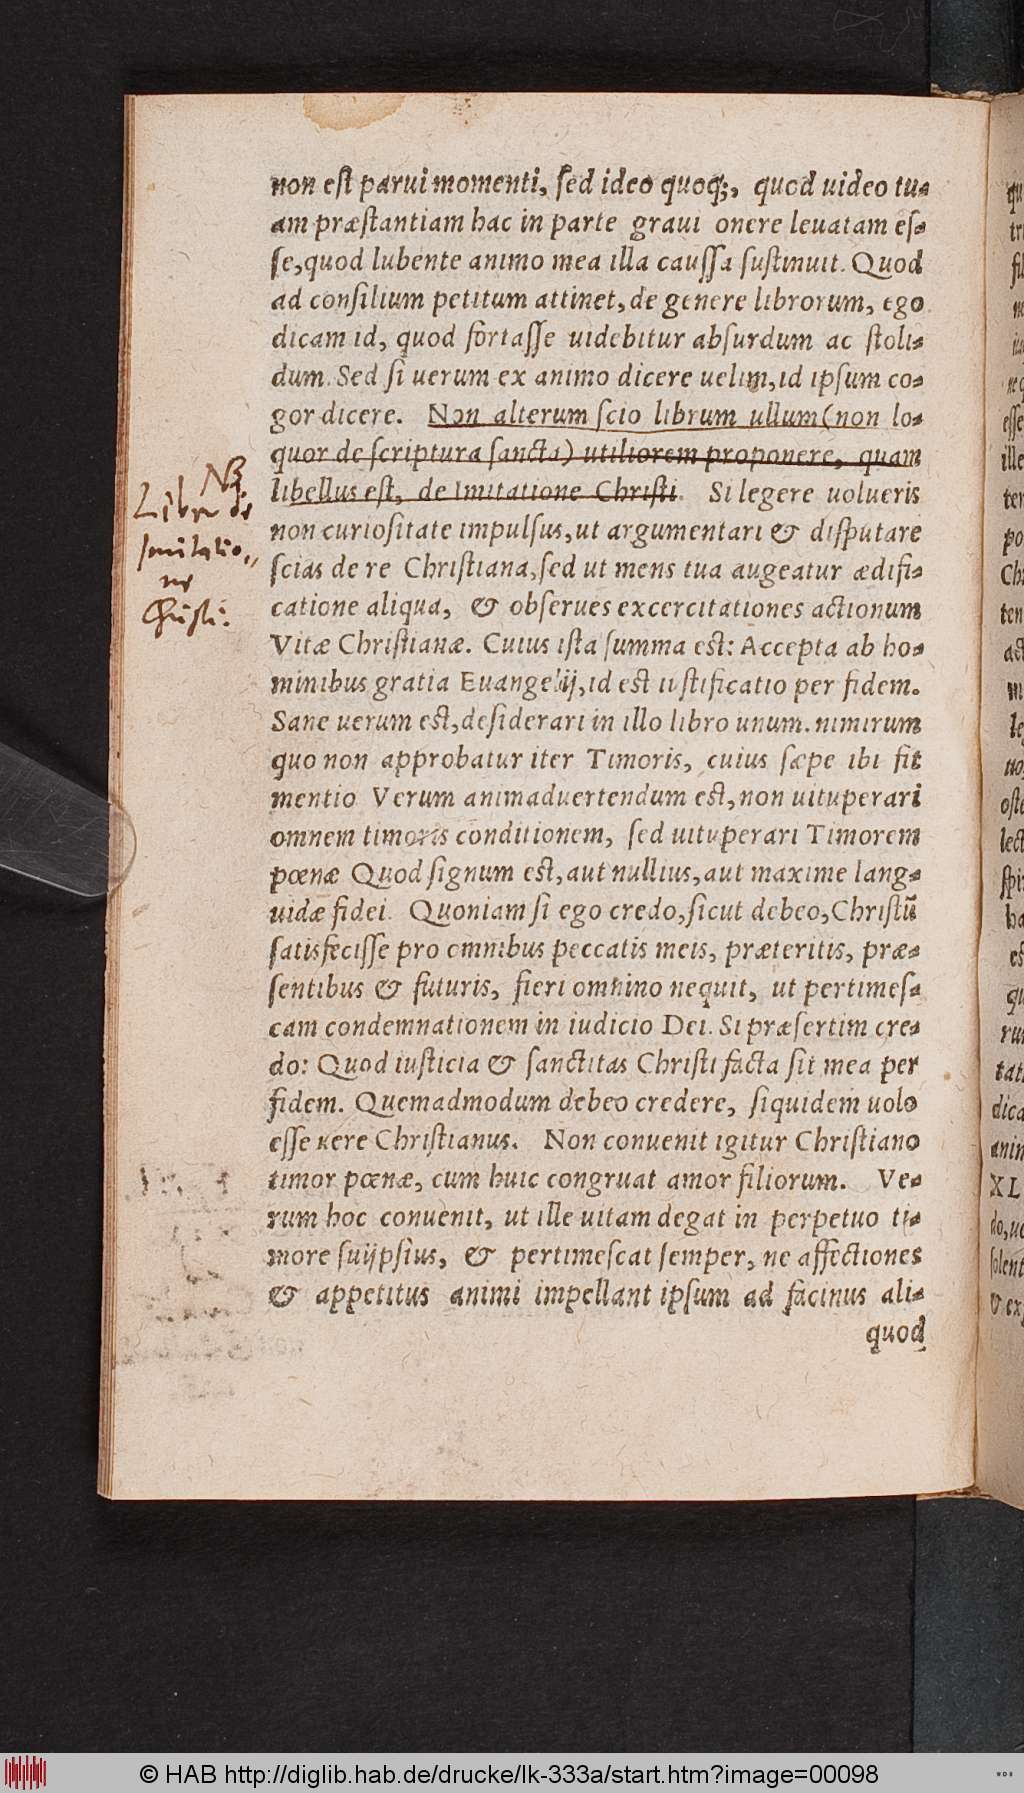 non est parui momenti, sed ideo quoq;, quod uideo tu-
am præstantiam hac in parte graui onere leuatam es-
se, quod lubente animo mea illa caussa sustinuit. Quod
ad consilium petitum attinet, de genere librorum, ego
dicam id, quod fortasse uidebitur absurdum ac stoli-
dum. Sed si uerum ex animo dicere uelim, id ipsum co-
gor dicere. Non alterum scio librum ullum (non lo-
quor de scriptura sancta) utiliorem proponere, quam
libellus est, de Imitatione Christi. Si legere uolueris
non curiositate impulsus, ut argumentari & disputare
scias de re Christiana, sed ut mens tua augeatur ædifi-
catione aliqua, & obserues excercitationes actionum
Vitæ Christianæ. Cuius ista summa est: Accepta ab ho-
minibus gratia Euangelij, id est iustificatio per fidem.
Sane uerum est, desiderari in illo libro unum. nimirum
quo non approbatur iter Timoris, cuius sæpe ibi fit
mentio Verum animaduertendum est, non uituperari
omnem timoris conditionem, sed uituperari Timorem
pœnæ Quod signum est, aut nullius, aut maxime lang-
uidæ fidei. Quoniam si ego credo, sicut debeo, Christū
satisfecisse pro omnibus peccatis meis, præteritis, præ-
sentibus & futuris, fieri omnino nequit, ut pertimes-
cam condemnationem in iudicio Dei. Si præsertim cre-
do: Quod iusticia & sanctitas Christi facta sit mea per
fidem. Quemadmodum debeo credere, siquidem uolo
esse uere Christianus. Non conuenit igitur Christiano
timor pœnæ, cum huic congruat amor filiorum. Ve-
rum hoc conuenit, ut ille uitam degat in perpetuo ti-
more suijpsius, & pertimescat semper, ne affectiones
& appetitus animi impellant ipsum ad facinus ali-
quod
NB.
Libr de
Imitatio-
ne
Christi.
© HAB http://diglib.hab.de/drucke/lk-333a/start.htm?image=00098